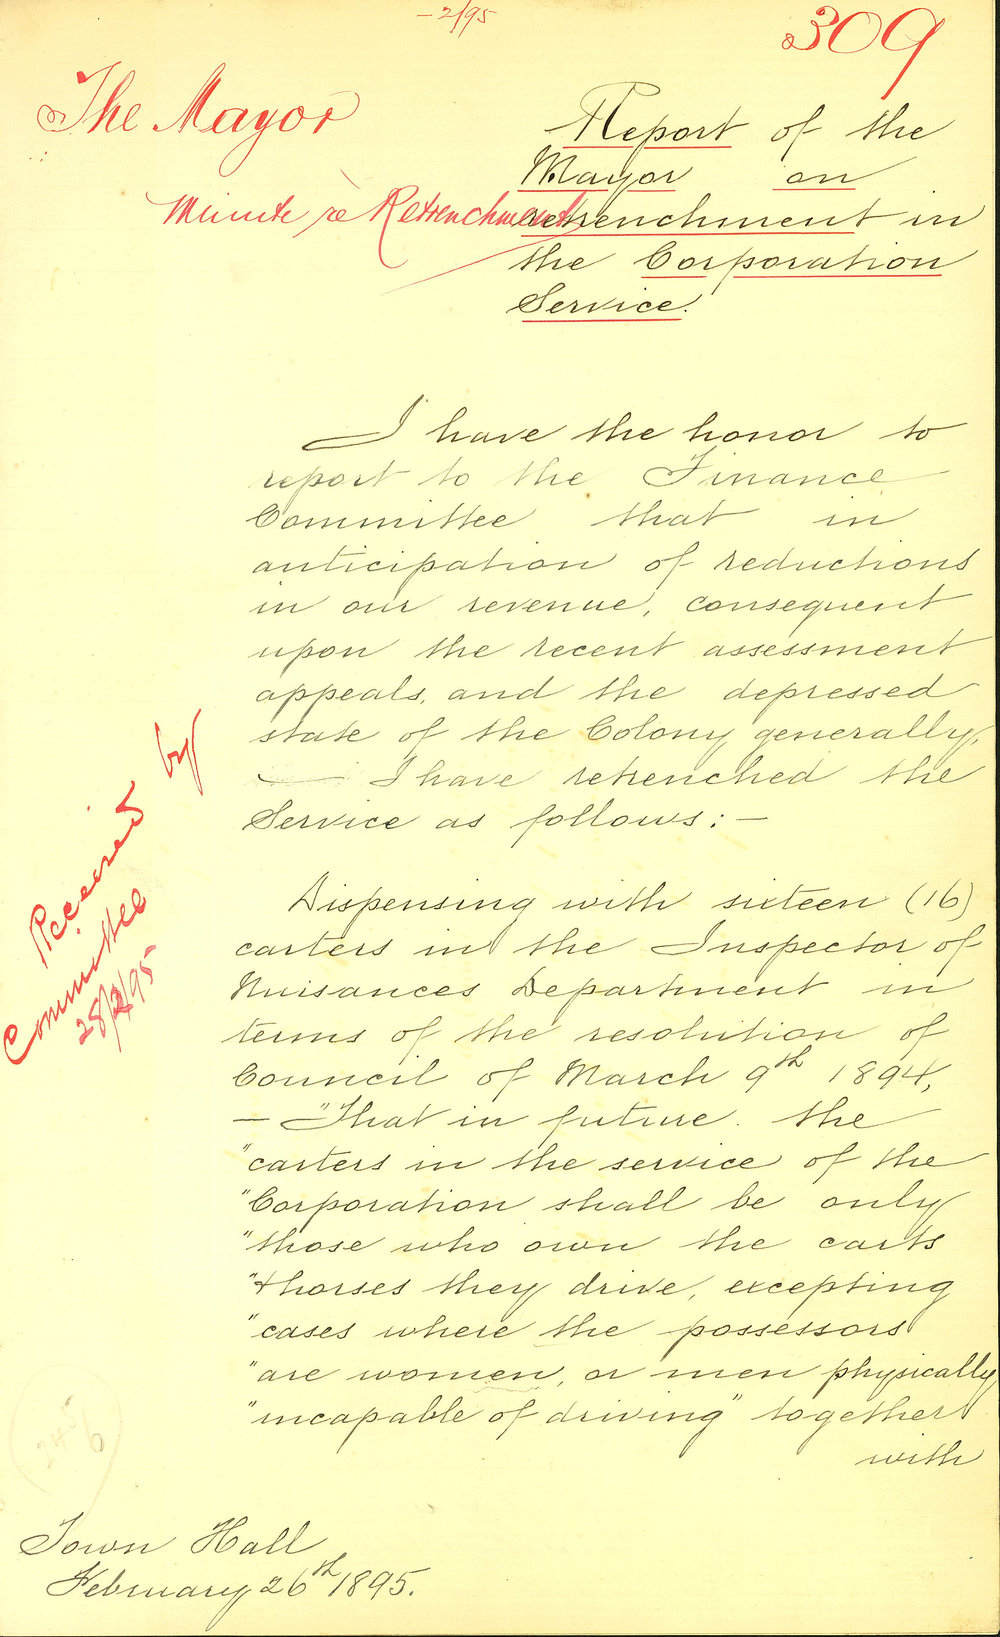 -2/95
309
The Mayor
Minute re Retrenchment
Report of the
Mayor on
retrenchment in
the Corporation
Service.
I have the honor to
report to the Finance
Committee that in
anticipation of reductions
in our revenue, consequent
upon the recent assessment
appeals, and the depressed
state of the Colony generally,
— I have retrenched the
Service as follows:—
Received by
Committee
28/2/95
Dispensing with sixteen (16)
carters in the Inspector of
Nuisances Department in
terms of the resolution of
Council of March 9th 1894,
— "That in future the
"carters in the service of the
"Corporation shall be only
"those who own the carts
"& horses they drive, excepting
"cases where the possessors
"are women, or men physically
"incapable of driving" together
with
24-6
Town Hall
February 26th 1895.